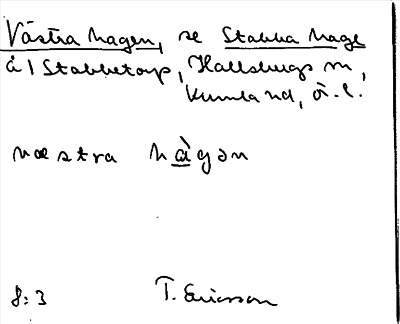 Västra hagen, se Stabba hage
å 1 Stabbetorp, Hallsbergs sn,
Kumla hd, Ö.l.
væstra hàgən
8:3 T. Ericsson